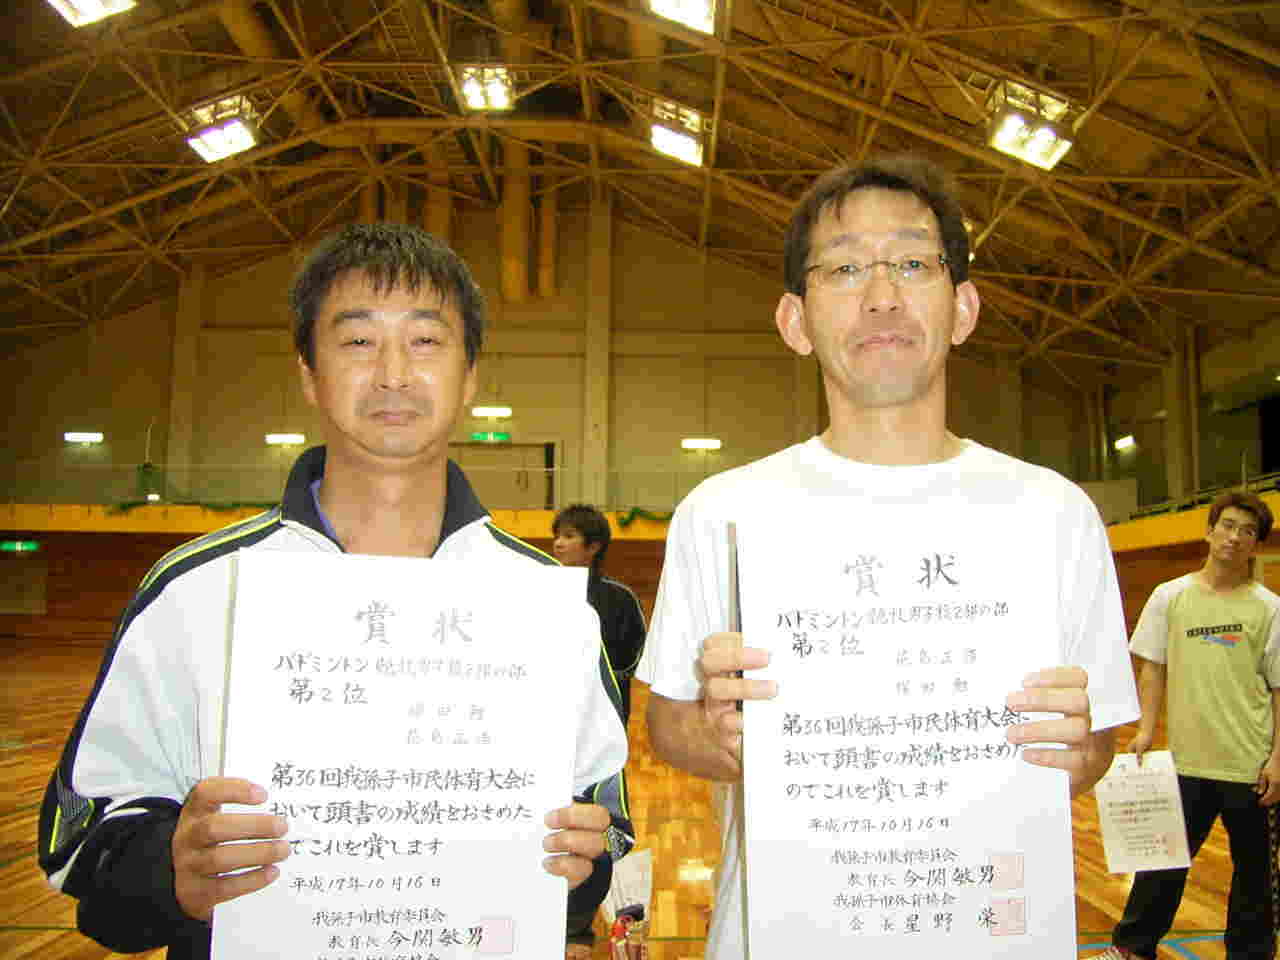 賞状
バドミントン競技男子複2部の部
第2位
花島正浩
塚田勉
第36回我孫子市民体育大会に
おいて頭書の成績をおさめた
のでこれを賞します
平成17年10月16日
我孫子市教育委員会
教育長 今関敏男
我孫子市体育協会
会長 星野 栄
賞状
バドミントン競技男子複2部の部
第2位
塚田勉
花島正浩
第36回我孫子市民体育大会に
おいて頭書の成績をおさめた
でこれを賞します
平成17年10月16日
我孫子市教育委員会
教育長 今関敏男